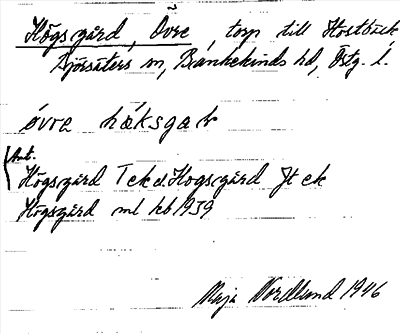 Högsgärd, Övre, torp till Hostbäck
Björsäters sn, Bankekinds hd, Östg. l.
övre håksgaḷ
Ant.
Högsgärd Tek d. Hogsgärd Jt ek
Högsgärd ml hb 1939
Maja Nordlund 1946